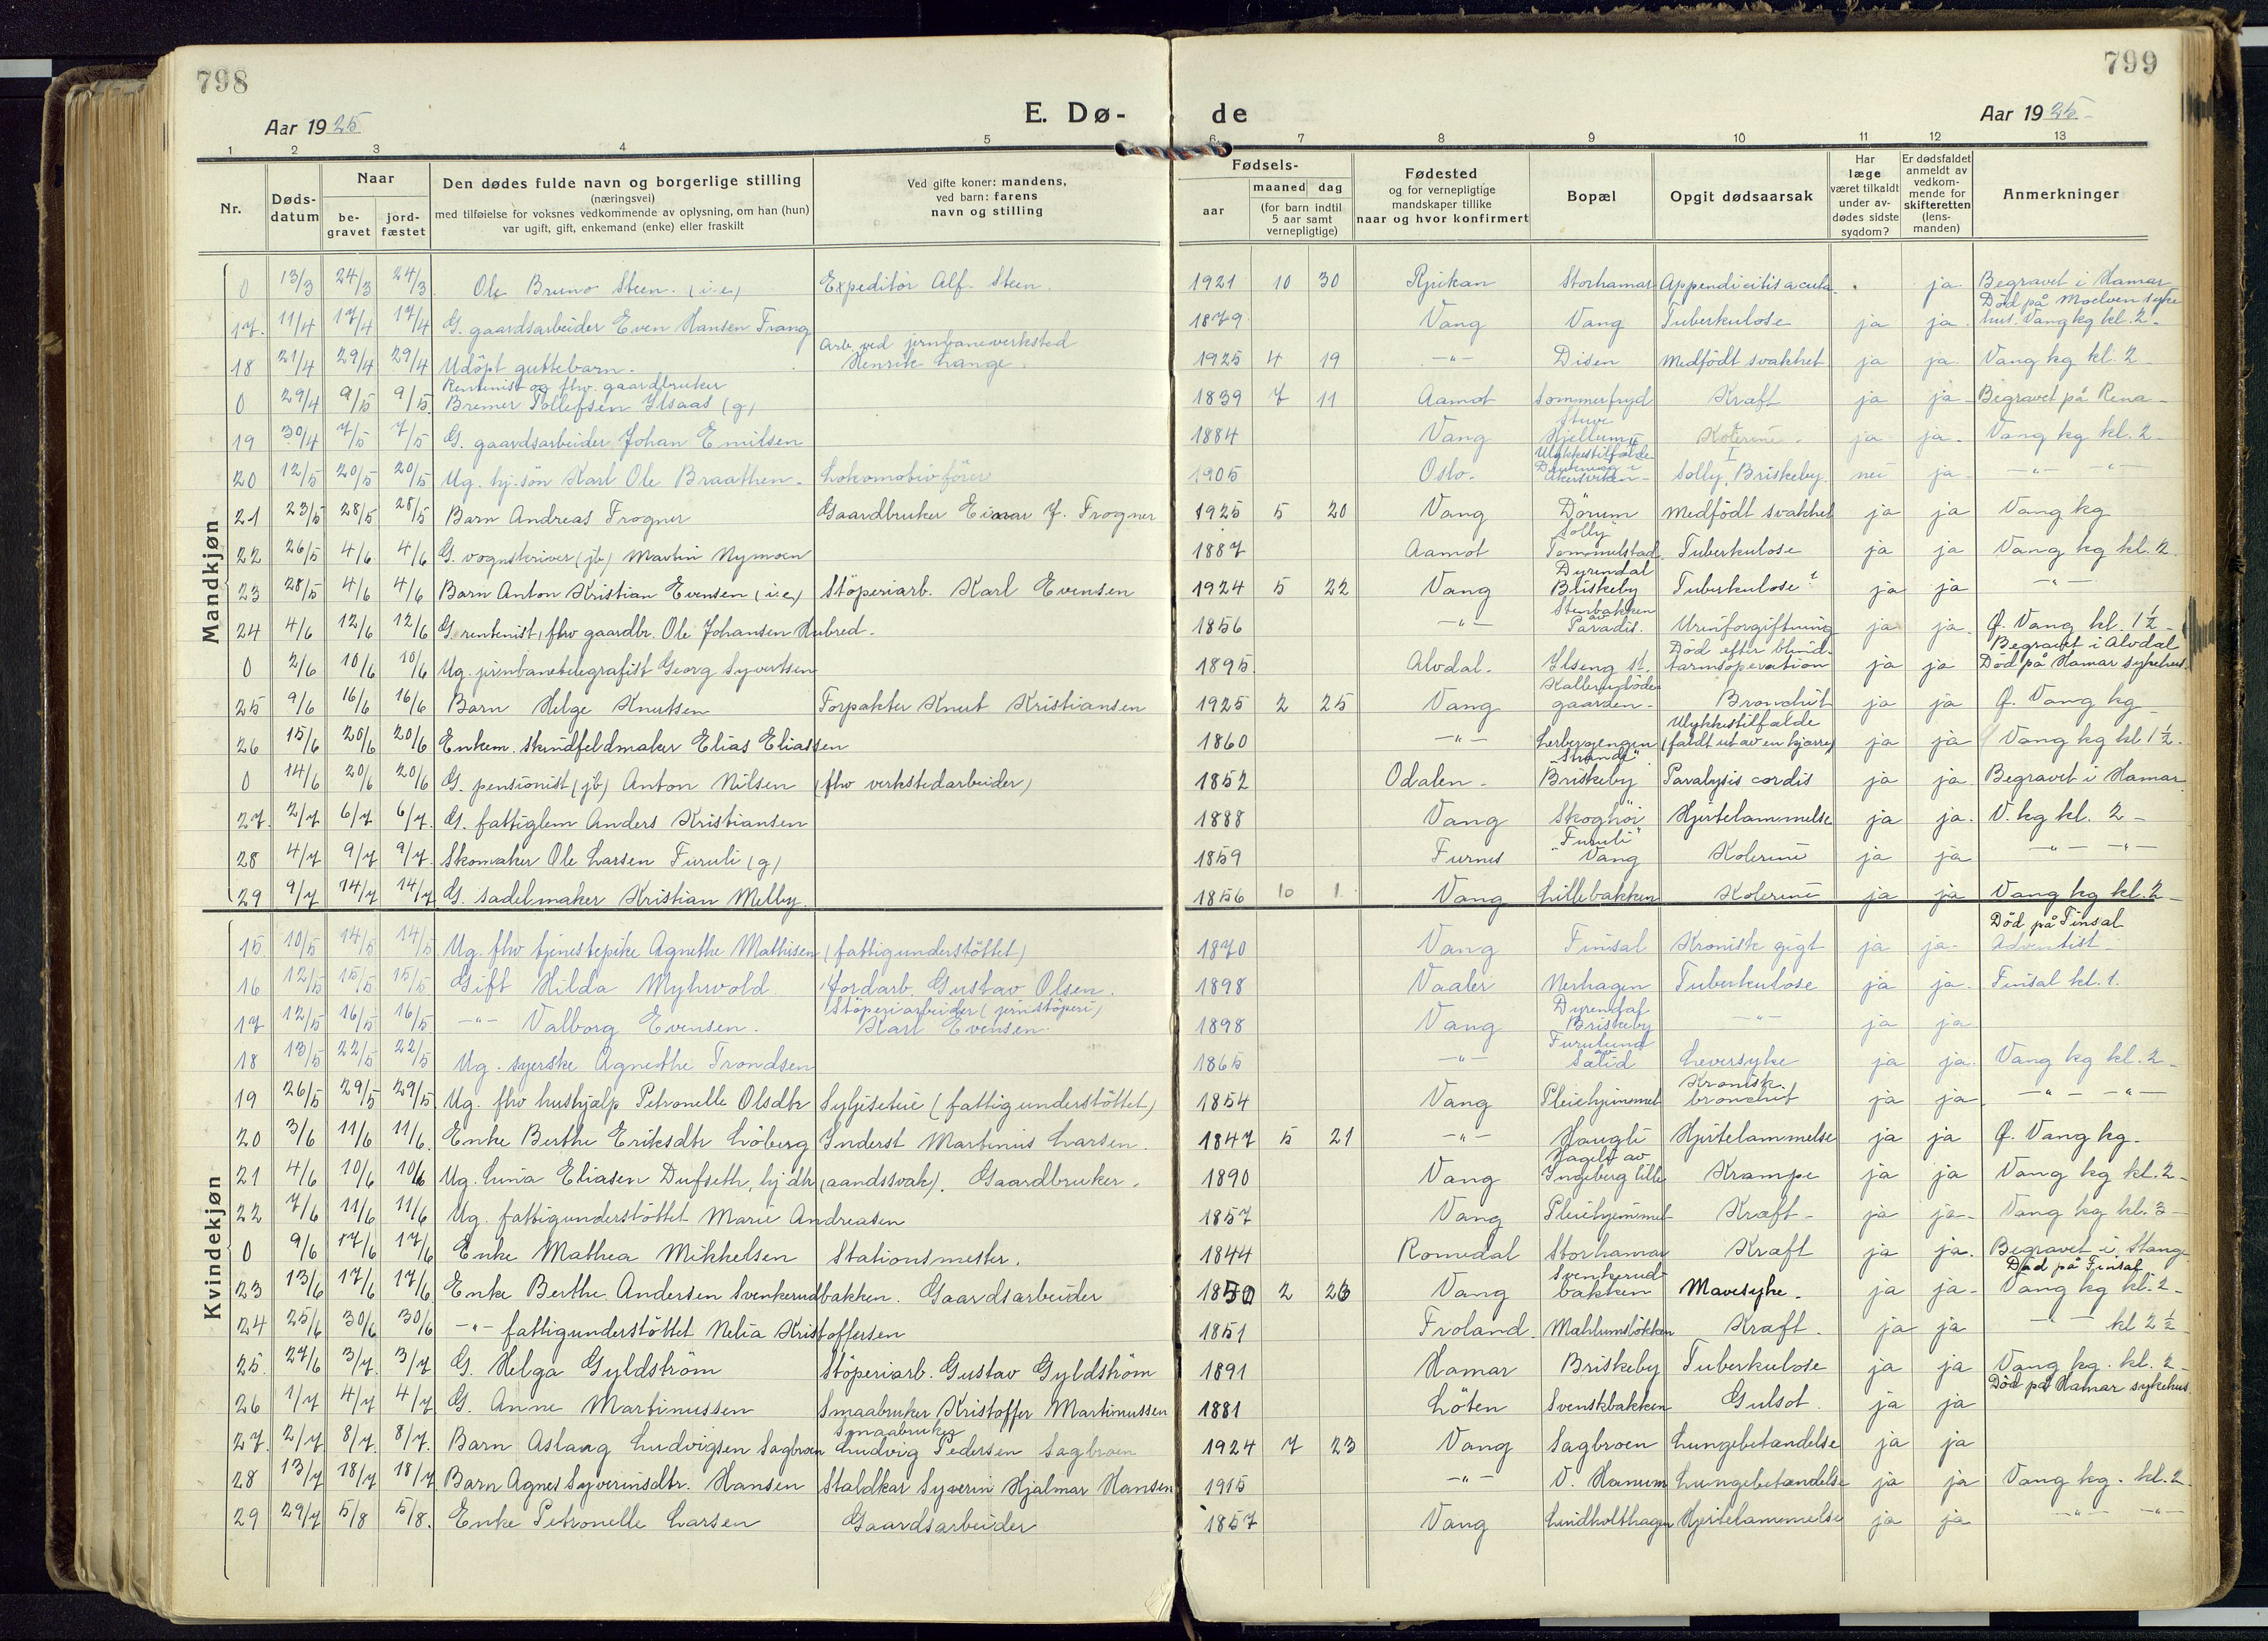 798
799
E. Dø-
de
Aar 1925
Aar 1925
1 2 3 4 5 6 7 8 9 10 11 12 13
Nr.
Døds-
datum
Naar
be-
gravet
jord-
fæstet
Den dødes fulde navn og borgerlige stilling
(næringsvei)
med tilføielse for voksnes vedkommende av oplysning, om han (hun)
var ugift, gift, enkemand (enke) eller fraskilt
Ved gifte koner: mandens,
ved barn: farens
navn og stilling
Fødsels-
aar
maaned dag
(for barn indtil
5 aar samt
vernepligtige)
Fødested
og for vernepligtige
mandskaper tillike
naar og hvor konfirmert
Bopæl
Opgit dødsaarsak
Har
læge
været tilkaldt
under av-
dødes sidste
sygdom?
Er dødsfaldet
anmeldt av
vedkom-
mende for
skifteretten
(lens-
manden)
Anmerkninger
Mandkjøn
0 13/3 24/3 24/3 Ole Bruno Steen. (i.e.) Expeditör Alf. Steen. 1921 10 30 Rjukan Storhamar Appendicitis acuta. ja. Begravet i Hamar
17. 11/4 17/4 17/4 G. gaardsarbeider Even Hansen Frang 1879 Vang Vang Tuberkulose ja ja. Död på Moelven syke
hus. Vang kg kl. 2.
18 21/4 29/4 29/4 Udöpt guttebarn. Arb. ved jernbaneverksted
Henrik Lange. 1925 4 19 -"- Disen Medfödt svakhet ja ja. Vang kg kl. 2
0 29/4 9/5 9/5. Rentenist og fhv. gaardbruker
Bremer Tollefsen Ilsaas (g) 1839 7 11 Aamot Sommerfryd Kræft ja ja Begravet på Rena
19 30/4 7/5 7/5 G. gaardsarbeider Johan Emilsen 1884 Vang Stuve
Hjellum Kolerine. ja ja. Vang kg kl. 2
20 12/5 20/5 20/5 Ug. hj. sön Karl Ole Braathen. Lokomotivförer 1905 Oslo. Ulykkestilfælde
Drukning i
Akersviken Solly, Briskeby. nei ja -"- -"-
21 23/5 28/5 28/5 Barn Andreas Frogner Gaardbruker Einar J. Frogner 1925 5 20 Vang Dörum Medfödt svakhet ja ja Vang kg
22 26/5 4/6 4/6 G. vognskriver (jb) Martin Nymoen 1887 Aamot Solly
Tommelstad Tuberkulose ja ja Vang kg kl. 2.
23 28/5 4/6 4/6 Barn Anton Kristian Evensen (i.e.) Stöperiarb. Karl Evensen 1924 5 22 Vang Dyrendal
Briskeby Tuberkulose? ja ja -"-
24 4/6 12/6 12/6 G. rentenist, fhv gaardbr. Ole Johansen Hubred. 1856 -"- Stenbakken
av
Paradis. Urinforgiftning ja ja. Ø. Vang kl. 1½
0 2/6 10/6 10/6 Ug. jernbanetelegrafist Georg Syvertsen 1895. Alvdal. Ilseng st. Död efter blind-
tarmsoperation ja ja Begravet i Alvdal
Död på Hamar sykehus.
25 9/6 16/6 16/6 Barn Helge Knutsen Forpakter Knut Kristiansen 1925 2 25 Vang gaarden. Bronchit ja ja Ø. Vang kg
26 15/6 20/6 20/6 Enkem. skindfeldmaker Elias Eliassen 1860 -"- Lerbergengen Ulykkestilfælde
(faldt ut av en kjærre) ja ja Vang kg kl 1½.
0 14/6 20/6 20/6 G. pensionist (jb) Anton Nilsen (fhv verkstedarbeider) 1852 Odalen. "Strande"
Briskeby Paralysis cordis ja ja. Begravet i Hamar
27. 2/7 6/7 6/7. G. fattiglem Anders Kristiansen 1888 Vang Skoghöi Hjertelammelse ja ja. V. kg kl. 2
28 4/7 9/7 9/7. Skomaker Ole Larsen Furuli (g) 1859 Furnes "Furuli"
Vang Kolerine ja ja -"- -"-
29 9/7 14/7 14/7 G. sadelmaker Kristian Melby. 1856 10 1 Vang Lillebakken Kolerine ja ja Vang kg kl. 2
Kvindekjøn
15. 10/5 14/5 14/5 Ug. fhv tjenestepike Agnethe Mathisen (fattigunderstöttet) 1870 Vang Finsal Kronisk gigt ja ja. Död på Finsal
Adventist
16 12/5 15/5 15/5 Gift Hilda Myhrvold Jordarb. Gustav Olsen. 1898 Vaaler Nerhagen Tuberkulose ja ja. Finsal kl. 1.
17 12/5 16/5 16/5 -"- Valborg Evensen. Stöperiarbeider (jernstöperi)
Karl Evensen. 1898 Vang Dyrendal
Briskeby -"- ja ja
18 13/5 22/5 22/5 Ug. syerske Agnethe Trondsen 1865 -"- Furulund
Sælid Leversyke ja ja. Vang kg kl. 2
19 26/5 29/5 29/5 Ug. fhv hushjælp Petronelle Olsdtr Syljeseteie (fattigunderstöttet) 1854 Vang Pleiehjemmet Kronisk
bronchit ja ja. -"- -"-
20 3/6 11/6 11/6. Enke Berthe Eriksdtr Löberg Inderst Martinius Larsen. 1847 5 21 -"- Haugli Hjertelammelse ja ja Ø. Vang kg.
21 4/6 10/6 10/6 Ug. Lina Eliasen Dufseth, hj. dtr (aandssvak). Gaardbruker. 1890 Vang Hagely av
Ingeberg lille Krampe ja ja Vang kg kl. 2
22 7/6 11/6 11/6 Ug. fattigunderstöttet Marie Andreasen 1857 Vang Pleiehjemmet Kræft ja ja Vang kg kl. 3
0 9/6 17/6 17/6 Enke Mathea Mikkelsen Stationsmester. 1844 Romedal Storhamar Kræft ja ja. Begravet i Stange
23 13/6 17/6 17/6 Enke Berthe Andersen Svenkerudbakken. Gaardsarbeider 1850 2 26 Vang Svenkerud-
bakken Mavesyke. ja ja Död på Finsal
Vang kg kl. 2
24 25/6 30/6 30/6 -"- fattigunderstöttet Nelia Kristoffersen 1851 Froland. Mahlumslökken Kræft. ja ja -"- kl 2½
25. 27/6 3/7. 3/7 G. Helga Gyldström Stöperiarb. Gustav Gyldström 1891 Hamar Briskeby Tuberkulose ja ja Vang kg. kl. 2
26 1/7 4/7 4/7 G. Anne Martinussen Smaabruker Kristoffer Martinussen 1881 Löten Svenskbakken Gulsot. ja ja Död på Hamar sykehus.
27. 2/7 8/7. 8/7. Barn Aslaug Ludvigsen Sagbroen Smaabruker
Ludvig Pedersen Sagbroen 1924 7 23 Vang Sagbroen Lungebetændelse ja ja
28 13/7 18/7 18/7 Barn Agnes Syverinsdtr. Hansen Staldkar Syverin Hjalmar Hansen 1915 -"- V. Hanum Lungebetændelse ja ja Vang kg. kl. 2
29 29/7 5/8 5/8. Enke Petronelle Larsen Gaardsarbeider 1857 Vang Lindholthagen Hjertelammelse ja ja -"- -"-